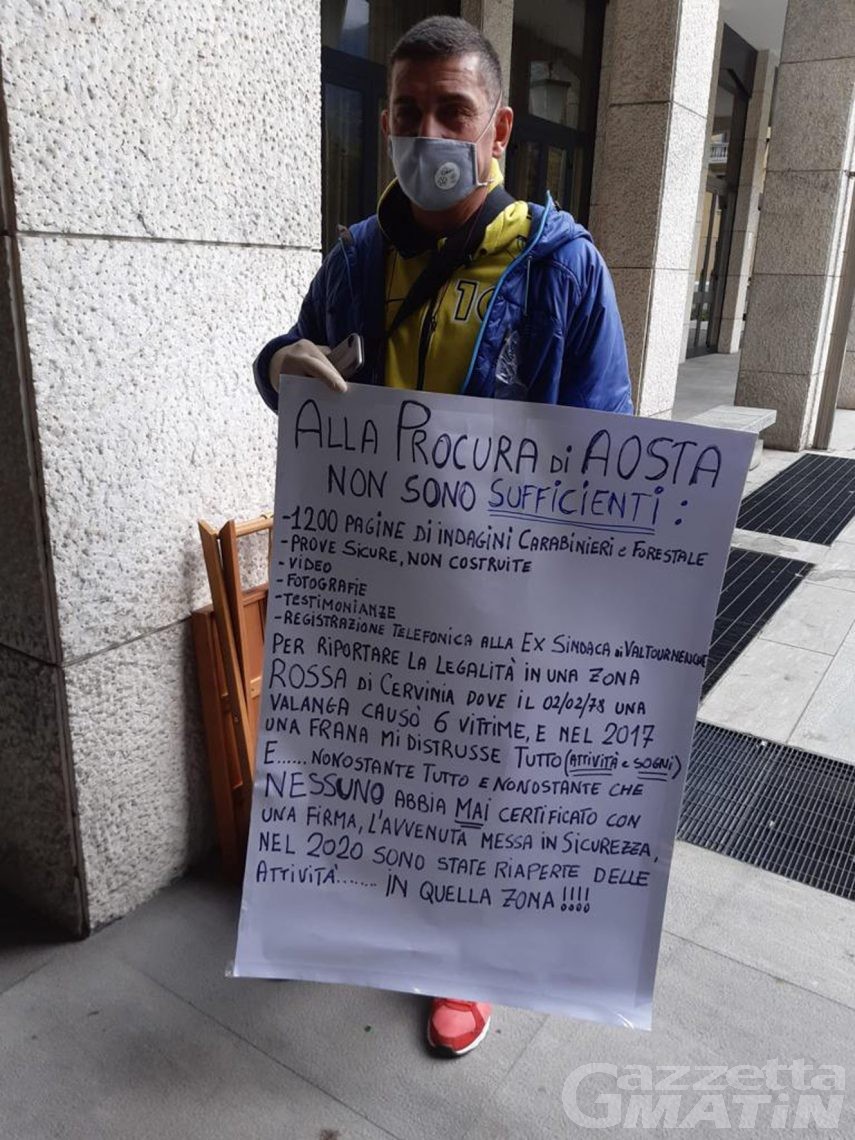 10
ALLA PROCURA di AOSTA
NON SONO SUFFICIENTI :
-1200 PAGINE DI INDAGINI CARABINIERI e FORESTALE
- PROVE SICURE, NON COSTRUITE
- VIDEO
- FOTOGRAFIE
- TESTIMONIANZE
- REGISTRAZIONE TELEFONICA ALLA EX SINDACA di VALTOURNENCHE
PER RIPORTARE LA LEGALITÀ IN UNA ZONA
ROSSA di CERVINIA DOVE IL 02/02/78 UNA
VALANGA CAUSÒ 6 VITTIME, E NEL 2017
UNA FRANA MI DISTRUSSE TUTTO (ATTIVITÀ e SOGNI)
E...... NONOSTANTE TUTTO E NONOSTANTE CHE
NESSUNO ABBIA MAI CERTIFICATO CON
UNA FIRMA, L'AVVENUTA MESSA IN SICUREZZA,
NEL 2020 SONO STATE RIAPERTE DELLE
ATTIVITÀ........ IN QUELLA ZONA !!!!
Gazzetta
MATIN